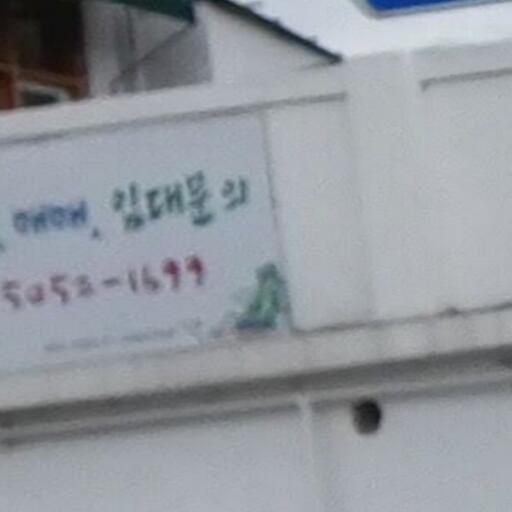 매매, 임대문의
5052-1699